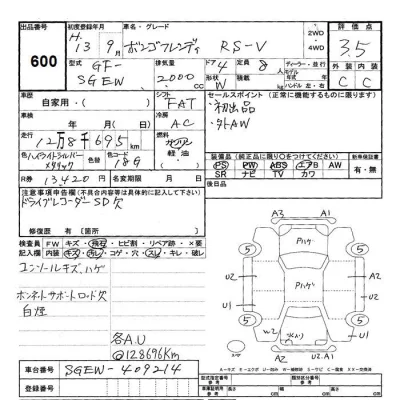 出品番号 初度登録年月 車名・グレード 2WD 評価点
600 H.13 9月 ボンゴフレンディ RS-V 4WD 3.5
型式 排気量 ドア 定員 ディーラー・並行 外装 内装
GF-SGEW 2000cc 4 8人 モデル 年 C C
形状 W ハンドル 左・右
車歴 シフト セールスポイント(正常に機能するものに限ります)
自家用・( ) FAT ・初出品
車検 冷房 ・外AW
年 月 日 AC
走行 燃料
12万8千695km ガソリン
軽油
外色 ハイライトシルバーメタリック 色替 色コード 18G ( )
装備品(純正品に限り○をつけてください) 新車時保証書
PS PW ABS エアB AW 有・無
SR ナビ TV カワ
R券 13420円 名変期限 月 日 後日品
注意事項申告欄(不具合等は具体的に記入して下さい)
ドライブレコーダー SD欠
修復歴 有[箇所 ]
検査員 FW キズ・飛石・ヒビ割・リペア跡・×要
記入欄 内装 キズ・汚レ・コゲ・穴・スレ・キレ・破レ
コンソールキズ、ハゲ
ボンネットサポートロッド欠
白煙
各A.U
@128696Km
車台番号 SGEW-409214
登録番号
A3 A1
5 5
パハゲ
A1
U2
A1
U2
U1
パハゲ
5 W2 5
A2 U2.A1
型式指定番号 類別区分番号
参考 参考